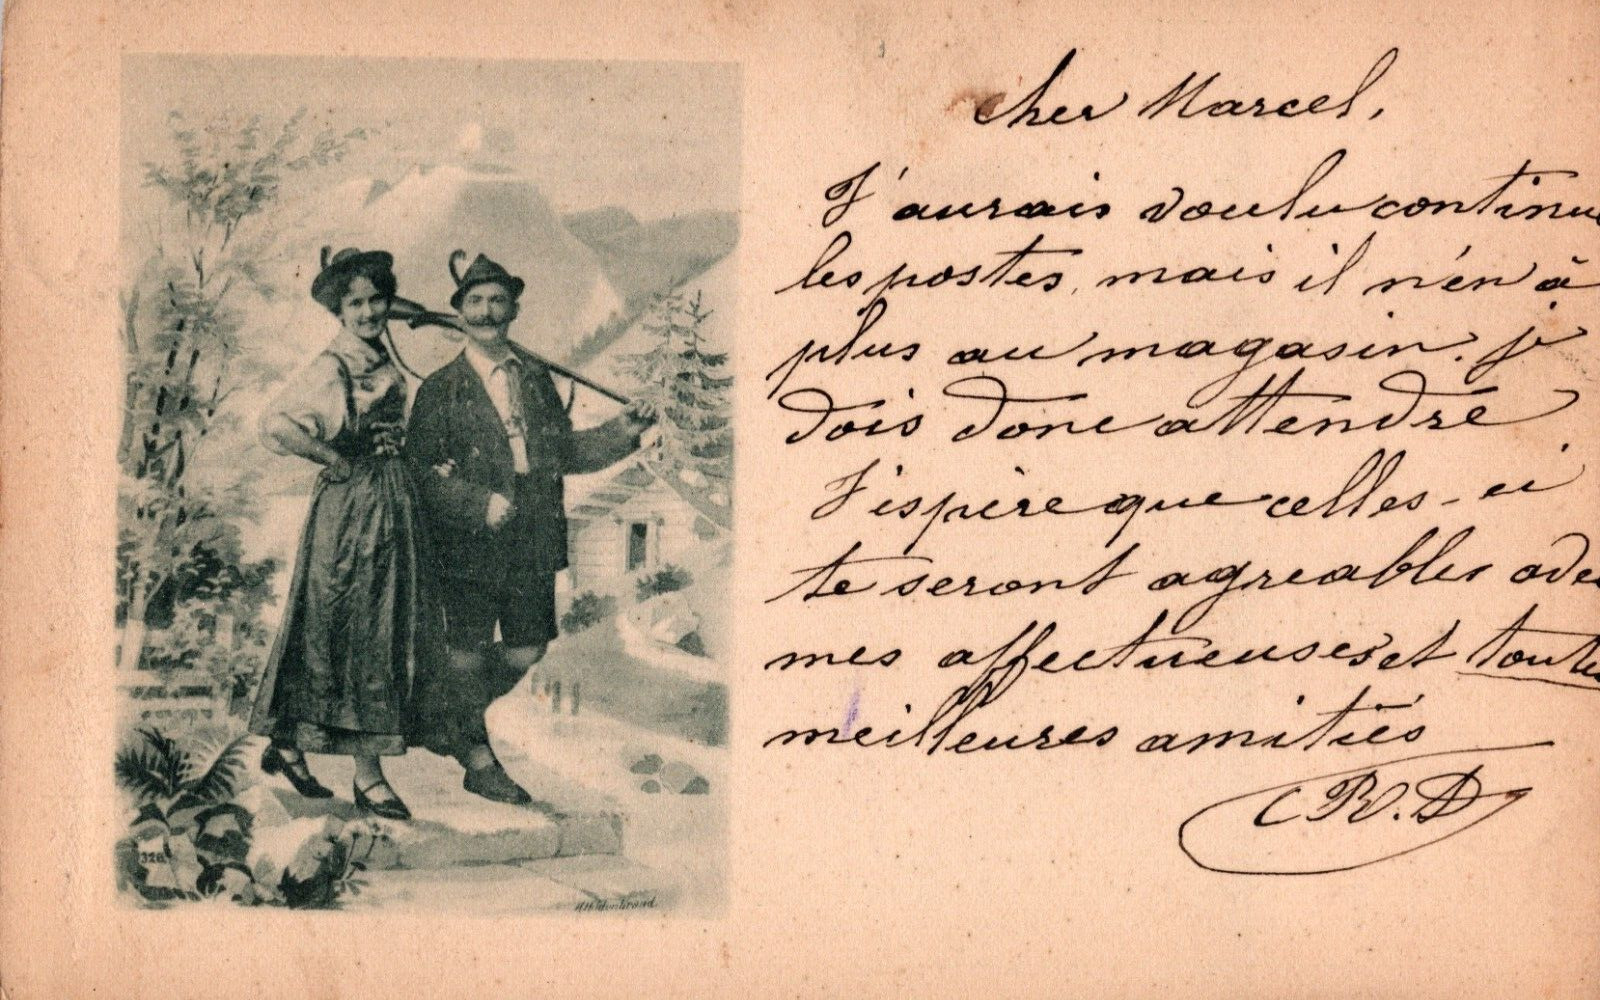 cher Marcel,
J'aurais voulu continue
les postes, mais il n'en à
plus au magasin. je
dois donc attendre.
J'espère que celles-ci
te seront agréables
mes affectueuses et toutes
meilleures amitiés
R. D
326